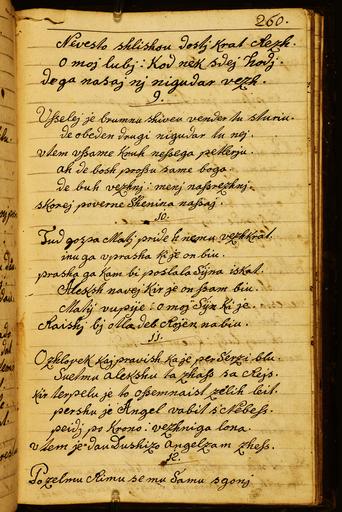 260.
Nevesto shlishou dostj krat Rezh.
O moj lubj: Kod nek sdej hodj.
de ga nasaj nj nigudar vezh.
9.
Usselej je brumnu shiveu vender tu sturiu.
de obeden drugi nigudar tu nej.
vtem vsame Kruh nessega petlerju.
ah de bosh prossu same boga.
de buh vezhnj: menj nassrezhnj.
skorej poverne Shenina nassaj.
10.
Tud gospa Matj pride k nemu vezhkrat.
inu ga vprasha kje on biu.
prasha ga kam bi poslala Syna iskat.
Alessh navej kir je on ssam biu.
Matj vupije: o moj Syn ki je.
Raishj bj Mladeb Rojen na biu.
11.
O zhlovek kaj pravish kaje per Serzi blu.
Svetmu Alekshu ta zhass sa Rejs.
kir terpelu je to ossemnaist zelih leit.
pershu je Angel vabit s Nebess.
pejdj po Krono: vezhniga lona.
vtem je dau Dushizo Angelzam zhess.
12.
Po zelmu Rimu se mu samu sgonj